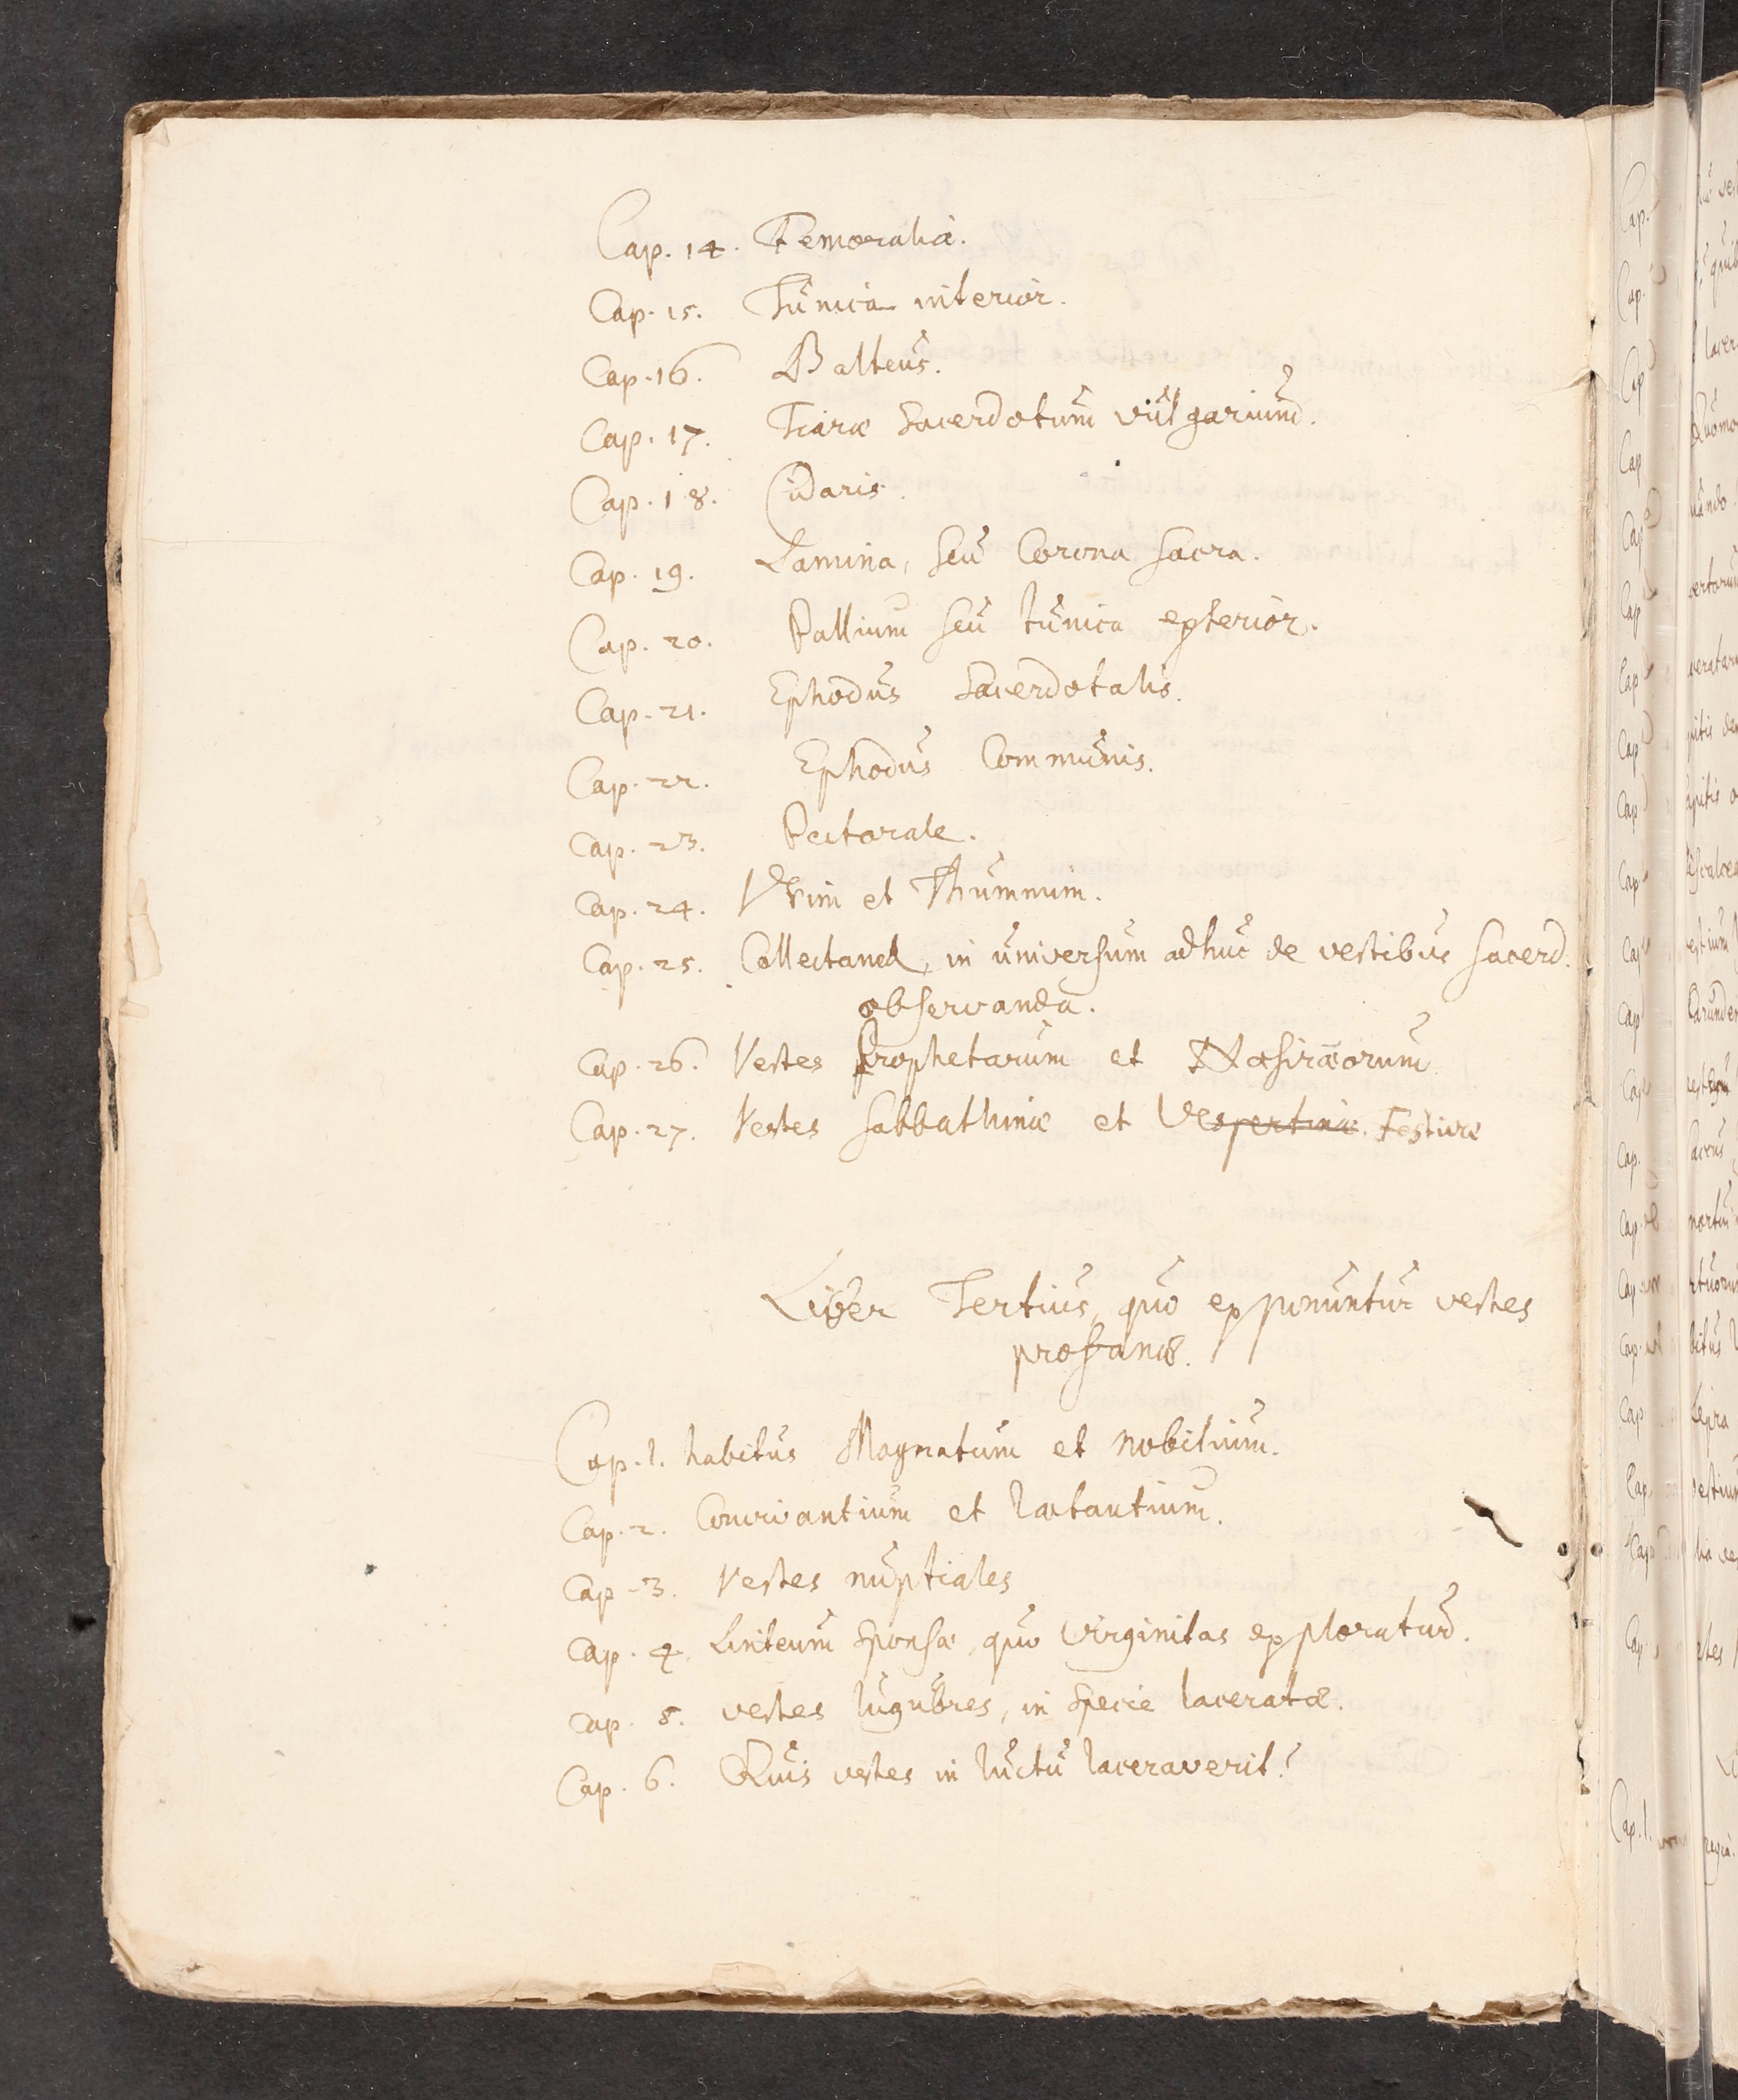 Cap. 14. Femoralia.
Cap. 15. Tunica interior.
Cap. 16. Balteus.
Cap. 17. Tiaræ Sacerdotum vulgarium.
Cap. 18. Cidaris.
Cap. 19. Lamina, seu Corona sacra.
Cap. 20. Pallium seu tunica exterior.
Cap. 21. Ephodus Sacerdotalis.
Cap. 22. Ephodus Communis.
Cap. 23. Pectorale.
Cap. 24. Vrim et Thummim.
Cap. 25. Collectanea, in universum adhuc de vestibus sacerd.
observanda.
Cap. 26. Vestes Prophetarum et Nasiræorum
Cap. 27. Vestes sabbathinæ et Vespertinæ. Festivæ
Liber Tertius, quo exponuntur vestes
profanæ.
Cap. 1. habitus Magnatum et nobilium.
Cap. 2. Convivantium et lætantium.
Cap. 3. Vestes nuptiales
Cap. 4. Linteum Sponsæ, quo Virginitas exploratur.
Cap. 5. vestes lugubres, in specie laceratæ.
Cap. 6. Quis vestes in luctu laceraverit?